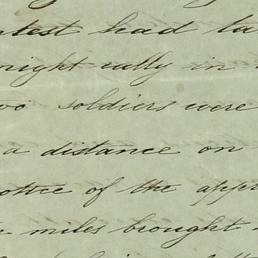 ntest had ta
night rally in
wo soldiers were
a distance on
notice of the appr
miles brought